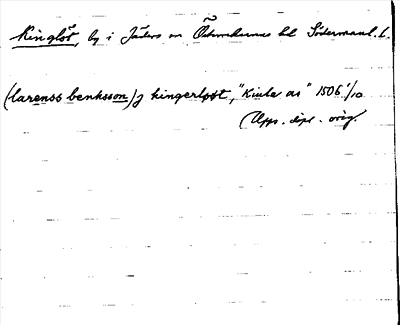 Kinglöt, by i Jäders sn Österrekarnes hd Södermanl. l.
(larenss benksson) j kingerløst, "Kinla as" 1506 1/10
Upps. dipl. orig.